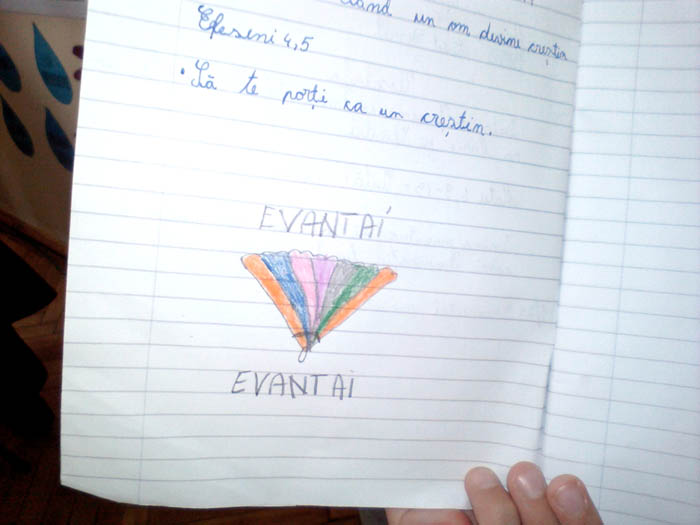 când un om devine creștin
Efeseni 4,5
• Să te porți ca un creștin.
EVANTAI
EVANTAI